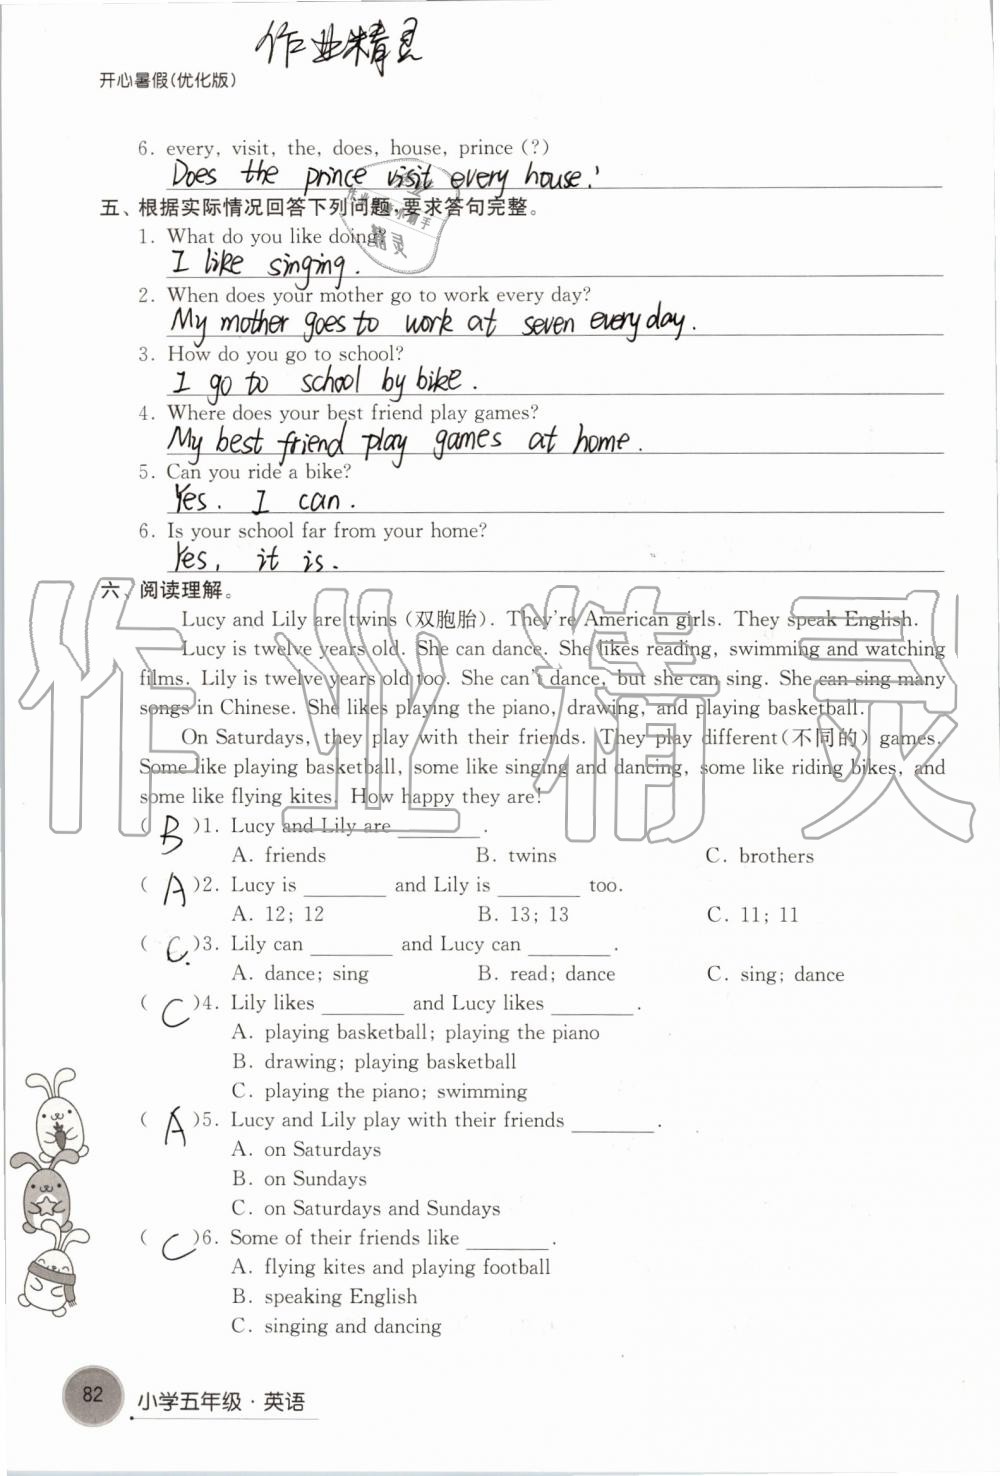 作业精灵
开心暑假(优化版)
6. every, visit, the, does, house, prince (?)
Does the prince visit every house.'
五、根据实际情况回答下列问题,要求答句完整。
1. What do you like doing?
I like singing.
2. When does your mother go to work every day?
My mother goes to work at seven every day.
3. How do you go to school?
I go to school by bike.
4. Where does your best friend play games?
My best friend play games at home.
5. Can you ride a bike?
Yes. I can.
6. Is your school far from your home?
Yes, it is.
六、阅读理解。
Lucy and Lily are twins (双胞胎). They're American girls. They speak English.
Lucy is twelve years old. She can dance. She likes reading, swimming and watching
films. Lily is twelve years old too. She can't dance, but she can sing. She can sing many
songs in Chinese. She likes playing the piano, drawing, and playing basketball.
On Saturdays, they play with their friends. They play different(不同的) games.
Some like playing basketball, some like singing and dancing, some like riding bikes, and
some like flying kites. How happy they are!
( B )1. Lucy and Lily are ________.
A. friends B. twins C. brothers
( A )2. Lucy is ________ and Lily is ________ too.
A. 12; 12 B. 13; 13 C. 11; 11
( C. )3. Lily can ________ and Lucy can ________.
A. dance; sing B. read; dance C. sing; dance
( C )4. Lily likes ________ and Lucy likes ________.
A. playing basketball; playing the piano
B. drawing; playing basketball
C. playing the piano; swimming
( A )5. Lucy and Lily play with their friends ________.
A. on Saturdays
B. on Sundays
C. on Saturdays and Sundays
( C )6. Some of their friends like ________.
A. flying kites and playing football
B. speaking English
C. singing and dancing
82
小学五年级·英语
作业精灵